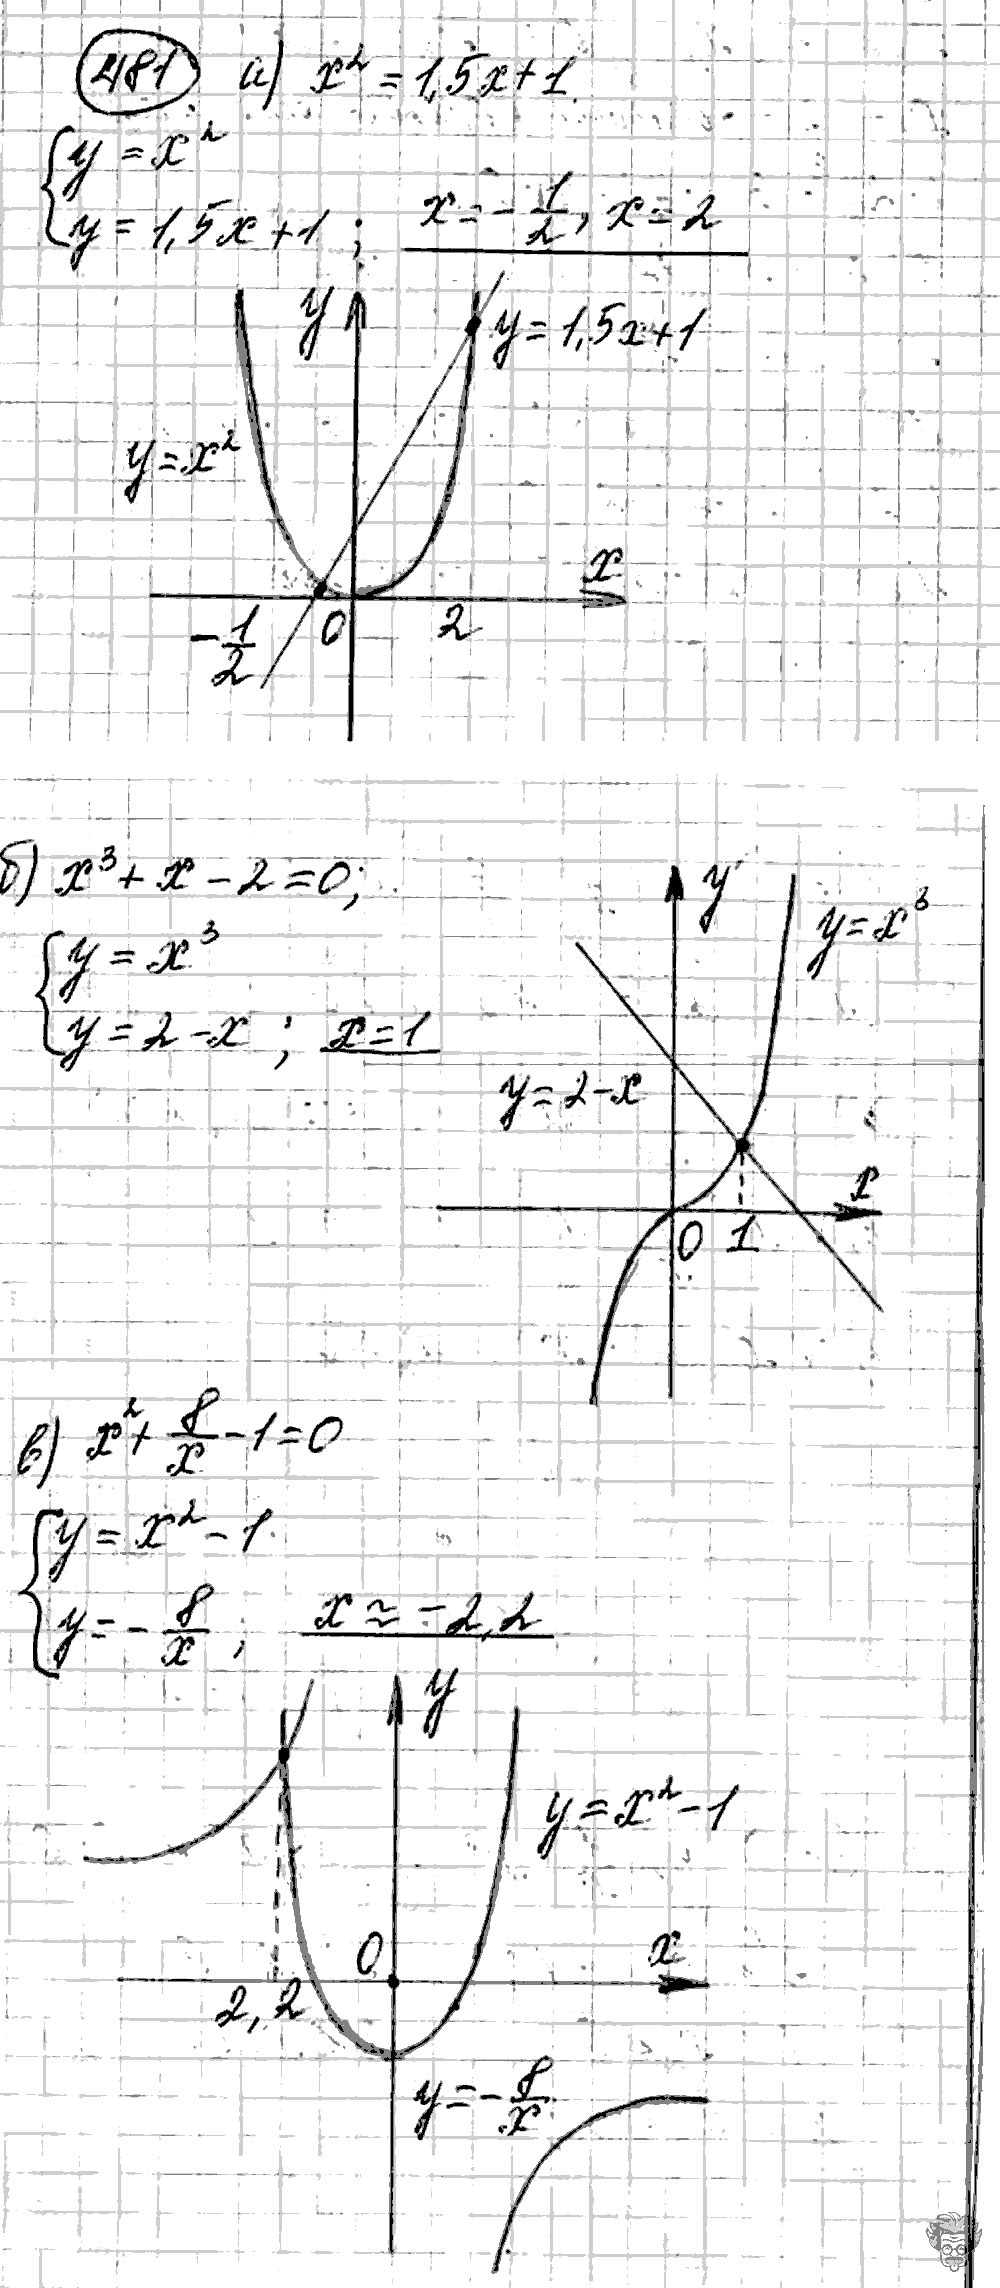 481 а) x² = 1,5x+1
{y = x²
y = 1,5x+1 ; x = -1/2, x = 2
y
y = 1,5x+1
y = x²
x
-1/2 0 2
б) x³ + x - 2 = 0;
y
y = x³
{y = x³
y = 2 - x ; x = 1
y = 2-x
x
0 1
в) x² + 8/x - 1 = 0
{y = x² - 1
y = - 8/x ; x ≈ -2,2
y
y = x² - 1
0
x
2,2
y = - 8/x